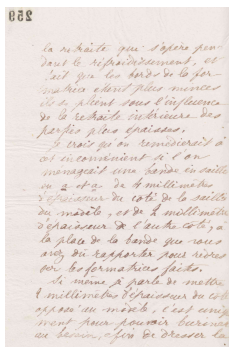 259
la retraite que s'opère pen-
dant le refroidissement, et
fait que les bords de la for-
matrice étant plus minces
ils plient sous l'influence
de la retraite intérieure des
parties plus épaisses.
Je crois qu'on remédierait à
cet inconvénient si l'on
ménageait une bande en saillie
de 4 millimètres
d'épaisseur du coté de la saillie
du modèle, et de 2 millimètres
d'épaisseur de l'autre coté, à
la place de la bande que vous
avez dû rapporter pour
sur les formatrices
Si même je parle de mettre
2 millimètres d'épaisseur du coté
opposé au modèle, c'est unique-
ment pour pouvoir buriner
au besoin, afin de dresser la